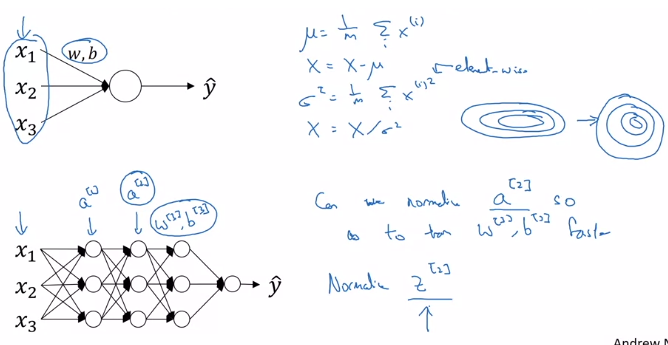 x₁
x₂
x₃
w, b
ŷ
μ = 1/m Σᵢ x⁽ⁱ⁾
X = X - μ
σ² = 1/m Σᵢ x⁽ⁱ⁾² element-wise
X = X/σ²
a^[1]
a^[2]
w^[3], b^[3]
x₁
x₂
x₃
ŷ
Can we normalize a^[2] so
as to train w^[3], b^[3] faster
Normalize z^[2]
Andrew N